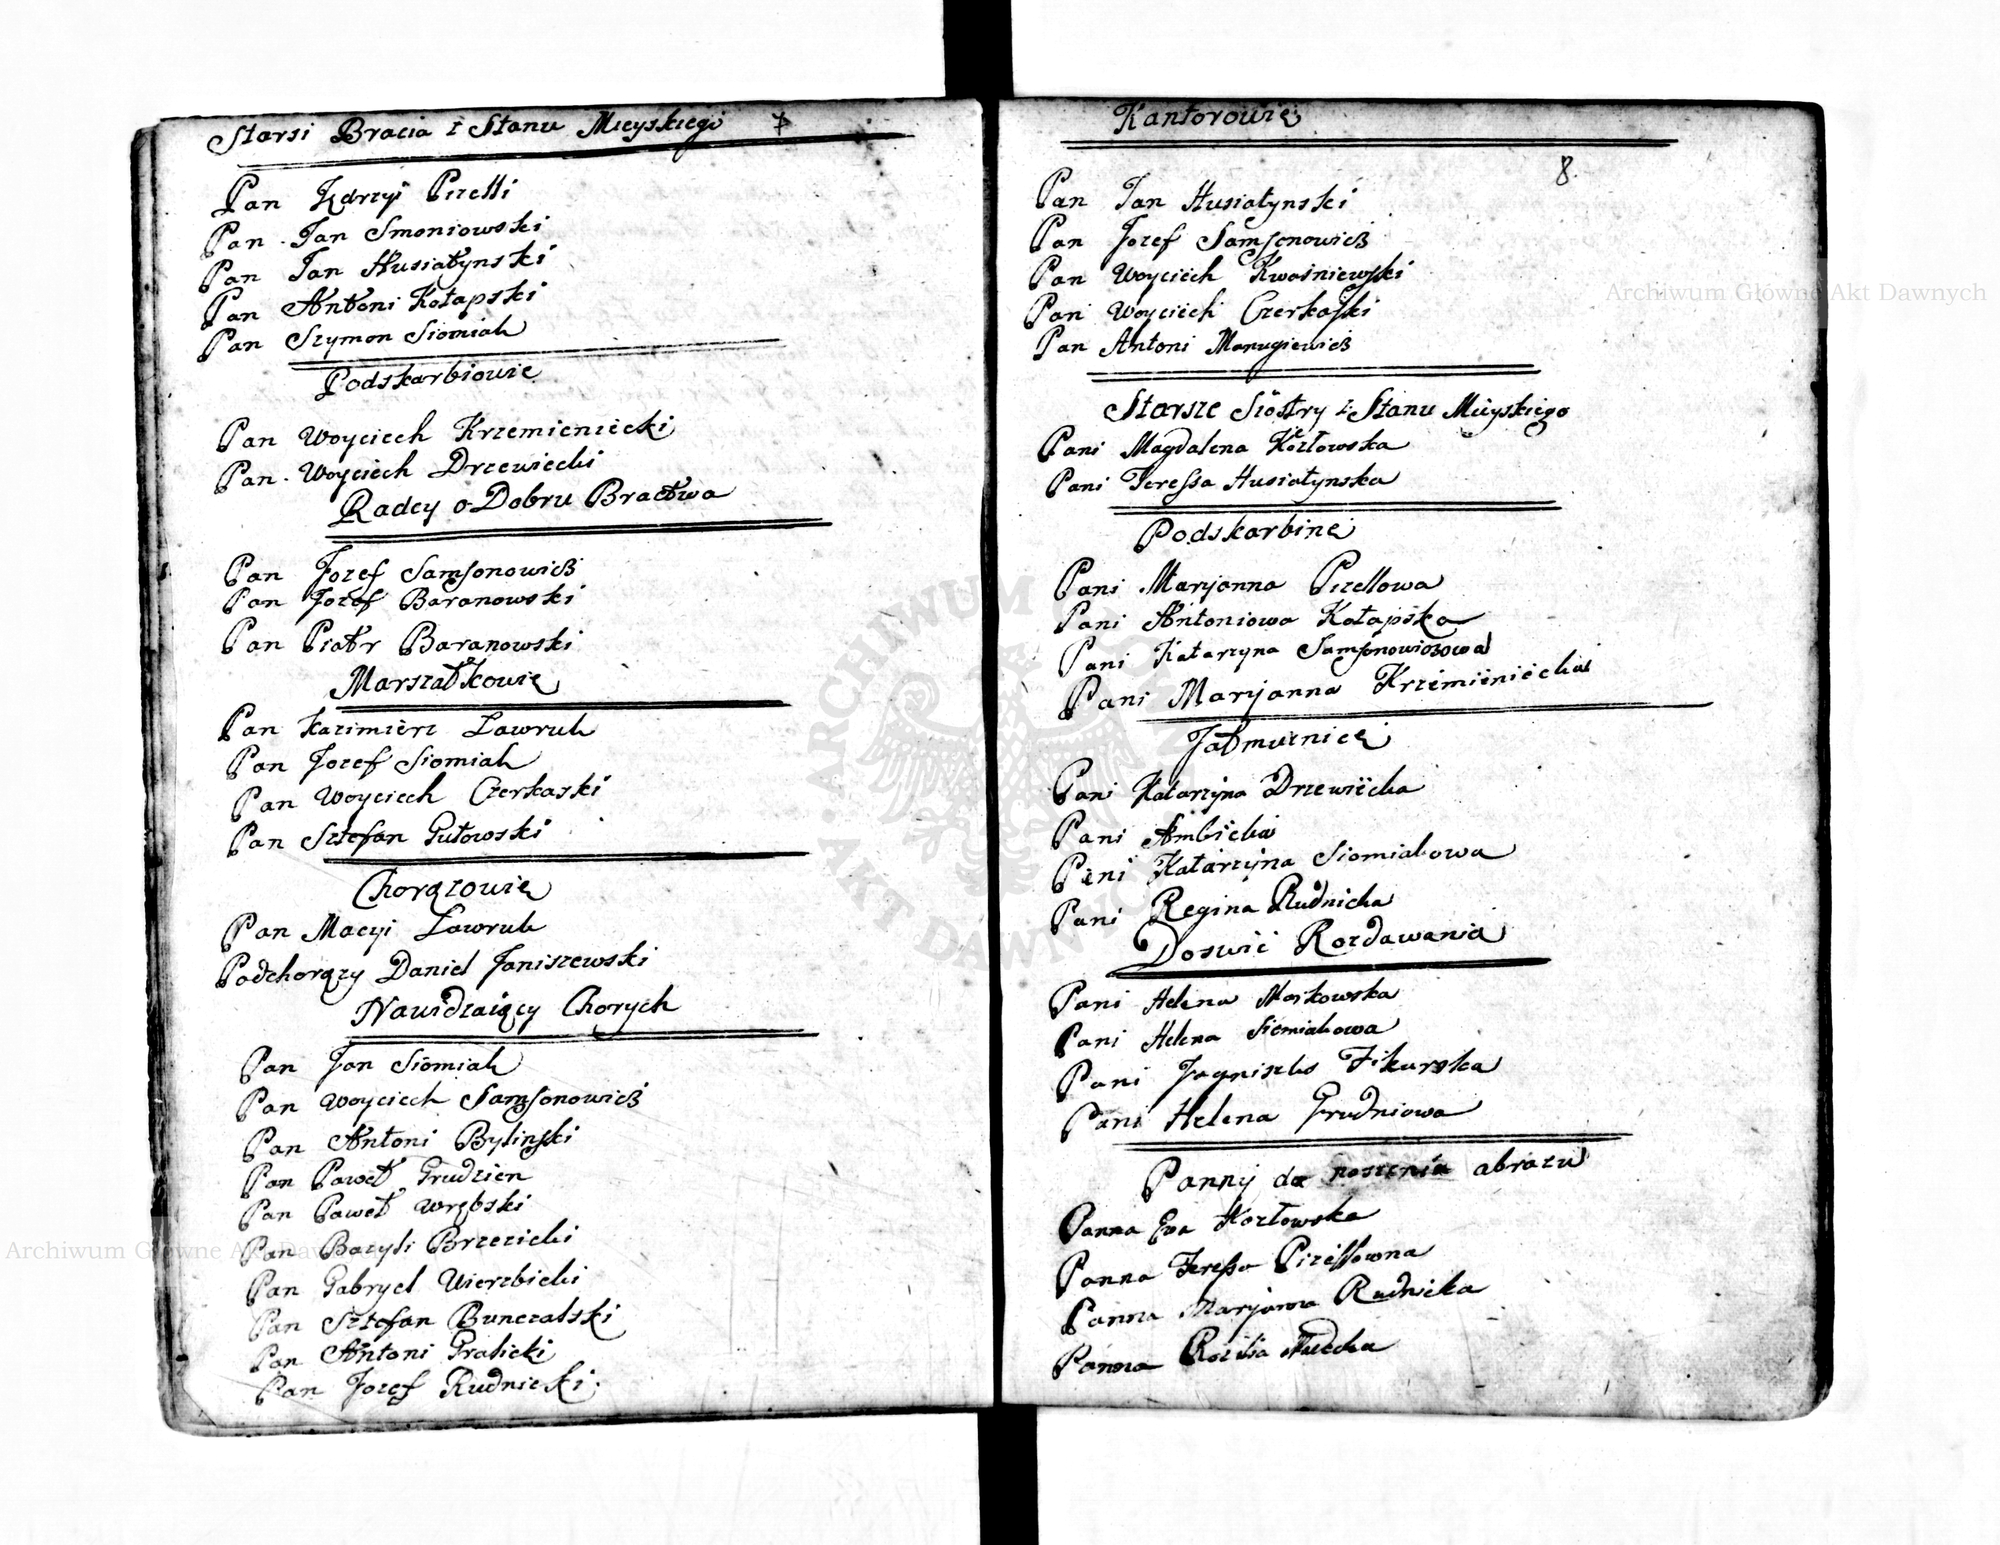 Starsi Bracia z Stanu Mieyskiego 7
Pan Jędrzyi Pizelli
Pan Jan Smoniowski
Pan Jan Husiatynski
Pan Antoni Kołapski
Pan Szymon Siomiak
Podskarbiowie
Pan Woyciech Krzemieniecki
Pan Woyciech Drzewiecki
Radcy o Dobru Bractwa
Pan Jozef Samsonowicz
Pan Jozef Baranowski
Pan Piotr Baranowski
Marszałkowie
Pan Kazimierz Lawruk
Pan Jozef Siomiak
Pan Woyciech Czerkaski
Pan Sztefan Gutowski
Chorązowie
Pan Macyi Lawruk
Podchorązy Daniel Janiszewski
Nawidzaiący Chorych
Pan Jan Siomiak
Pan Woyciech Samsonowicz
Pan Antoni Bylinski
Pan Paweł Grudzien
Pan Paweł Wrębski
Pan Bazyli Brzezicki
Pan Gabryel Wierzbicki
Pan Sztefan Bunczalski
Pan Antoni Gralicki
Pan Jozef Rudnicki
Kantorowie
8
Pan Jan Husiatynski
Pan Jozef Samsonowicz
Pan Woyciech Kwasniewski
Pan Woyciech Czerkaski
Pan Antoni Manugiewicz
Starsze Siostry z Stanu Mieyskiego
Pani Magdalena Kozłowska
Pani Teressa Husiatynska
Podskarbine
Pani Maryanna Pizellowa
Pani Antoniowa Kołapska
Pani Katarzyna Samsonowiczowa
Pani Maryanna Krzemieniecka
Jałmuznice
Pani Katarzyna Drzewiecka
Pani Ambicka
Pani Katarzyna Siomiakowa
Pani Regina Rudnicka
Doswic Rozdawania
Pani Helena Moskowska
Pani Helena Siemiakowa
Pani Jagniszka Fikurska
Pani Helena Grudniowa
Panny do noszenia abrazu
Panna Ewa Kozłowska
Panna Teressa Pizellowna
Panna Maryanna Rudnicka
Panna Rozalia
Archiwum Główne Akt Dawnych
Archiwum Główne Akt Dawnych
ARCHIWUM GŁÓWNE AKT DAWNYCH